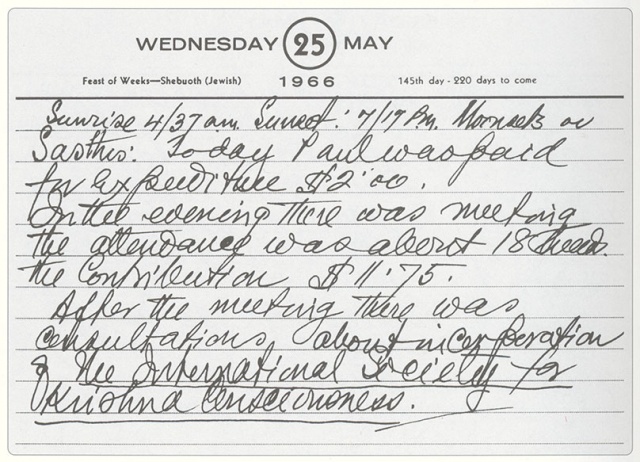 WEDNESDAY 25 MAY
Feast of Weeks—Shebuoth (Jewish) 1966 145th day - 220 days to come
Sunrise 4/37 a.m. Sunset: 7/17 P.m. Moonsets on
Sasthis. Today Paul was paid
for Expenditure $2.00.
In the evening There was meeting
the attendance was about 18 heads.
the Contribution $11.75.
After the meeting There was
consultations about incorporation
of The International Society for
Krishna Consciousness.